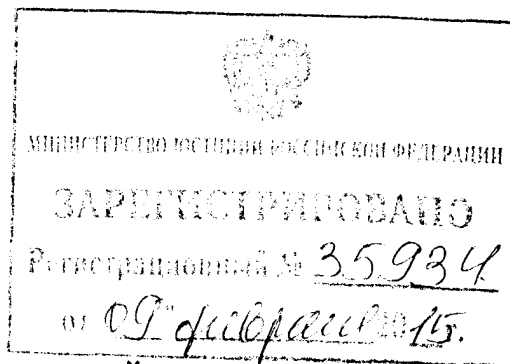 МИНИСТЕРСТВО ЮСТИЦИИ РОССИЙСКОЙ ФЕДЕРАЦИИ
ЗАРЕГИСТРИРОВАНО
Регистрационный № 35934
от "09" февраля 2015.